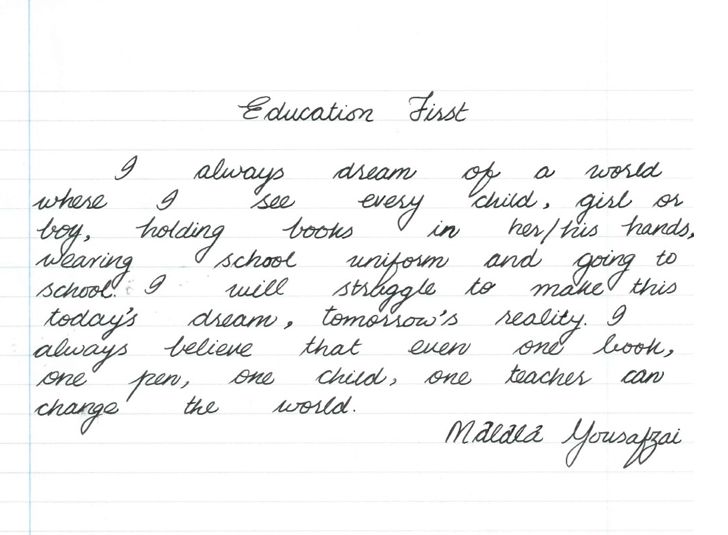 Education First
I always dream of a world
where I see every child, girl or
boy, holding books in her/his hands,
wearing school uniform and going to
school. I will struggle to make this
today's dream, tomorrow's reality. I
always believe that even one book,
one pen, one child, one teacher can
change the world.
Malala Yousafzai